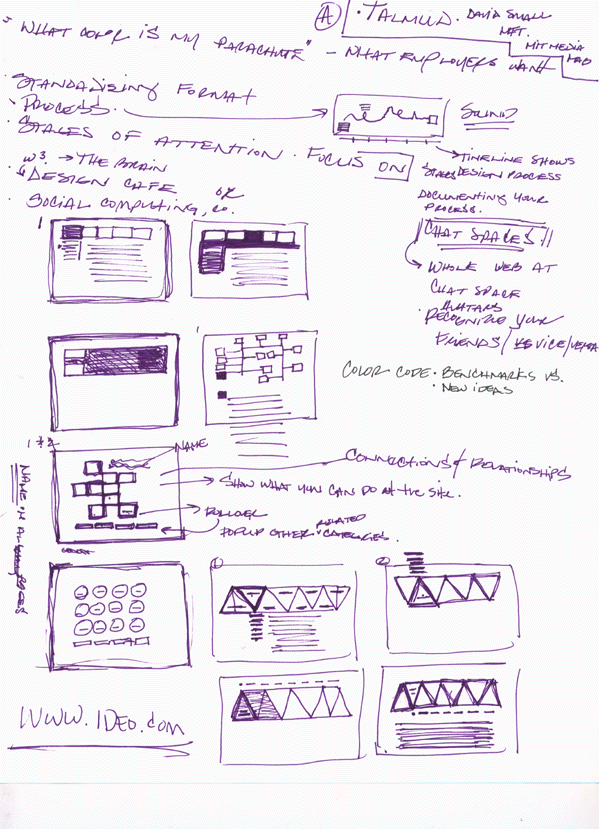 "WHAT COLOR IS MY PARACHUTE" - WHAT EMPLOYERS WANT
A
• TALMUD. DAVID SMALL
MIT MEDIA LAB
• STANDARDISING FORMAT
• PROCESS.
SOUND
• STAGES OF ATTENTION • FOCUS ON
W3. → THE BRAIN
DESIGN CAFE
OR
• SOCIAL COMPUTING, CO.
TIMELINE SHOWS
DESIGN PROCESS
DOCUMENTING YOUR
PROCESS.
CHAT SPACES
WHOLE WEB AT
CHAT SPACE
AVATARS
RECOGNIZE YOUR
FRIENDS/
COLOR CODE • BENCHMARKS VS.
• NEW IDEAS
1
1
1 & 2
NAME
CONNECTIONS & RELATIONSHIPS
→ SHOW WHAT YOU CAN DO AT THE SITE.
→ ROLLOVER
POPUP OTHER RELATED CATEGORIES.
NAME ON ALL PAGES
1
2
WWW.IDEO.COM